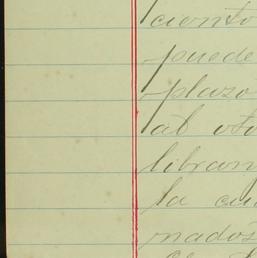 ciento
puede
plazo
al oto
libran
la cu
nados